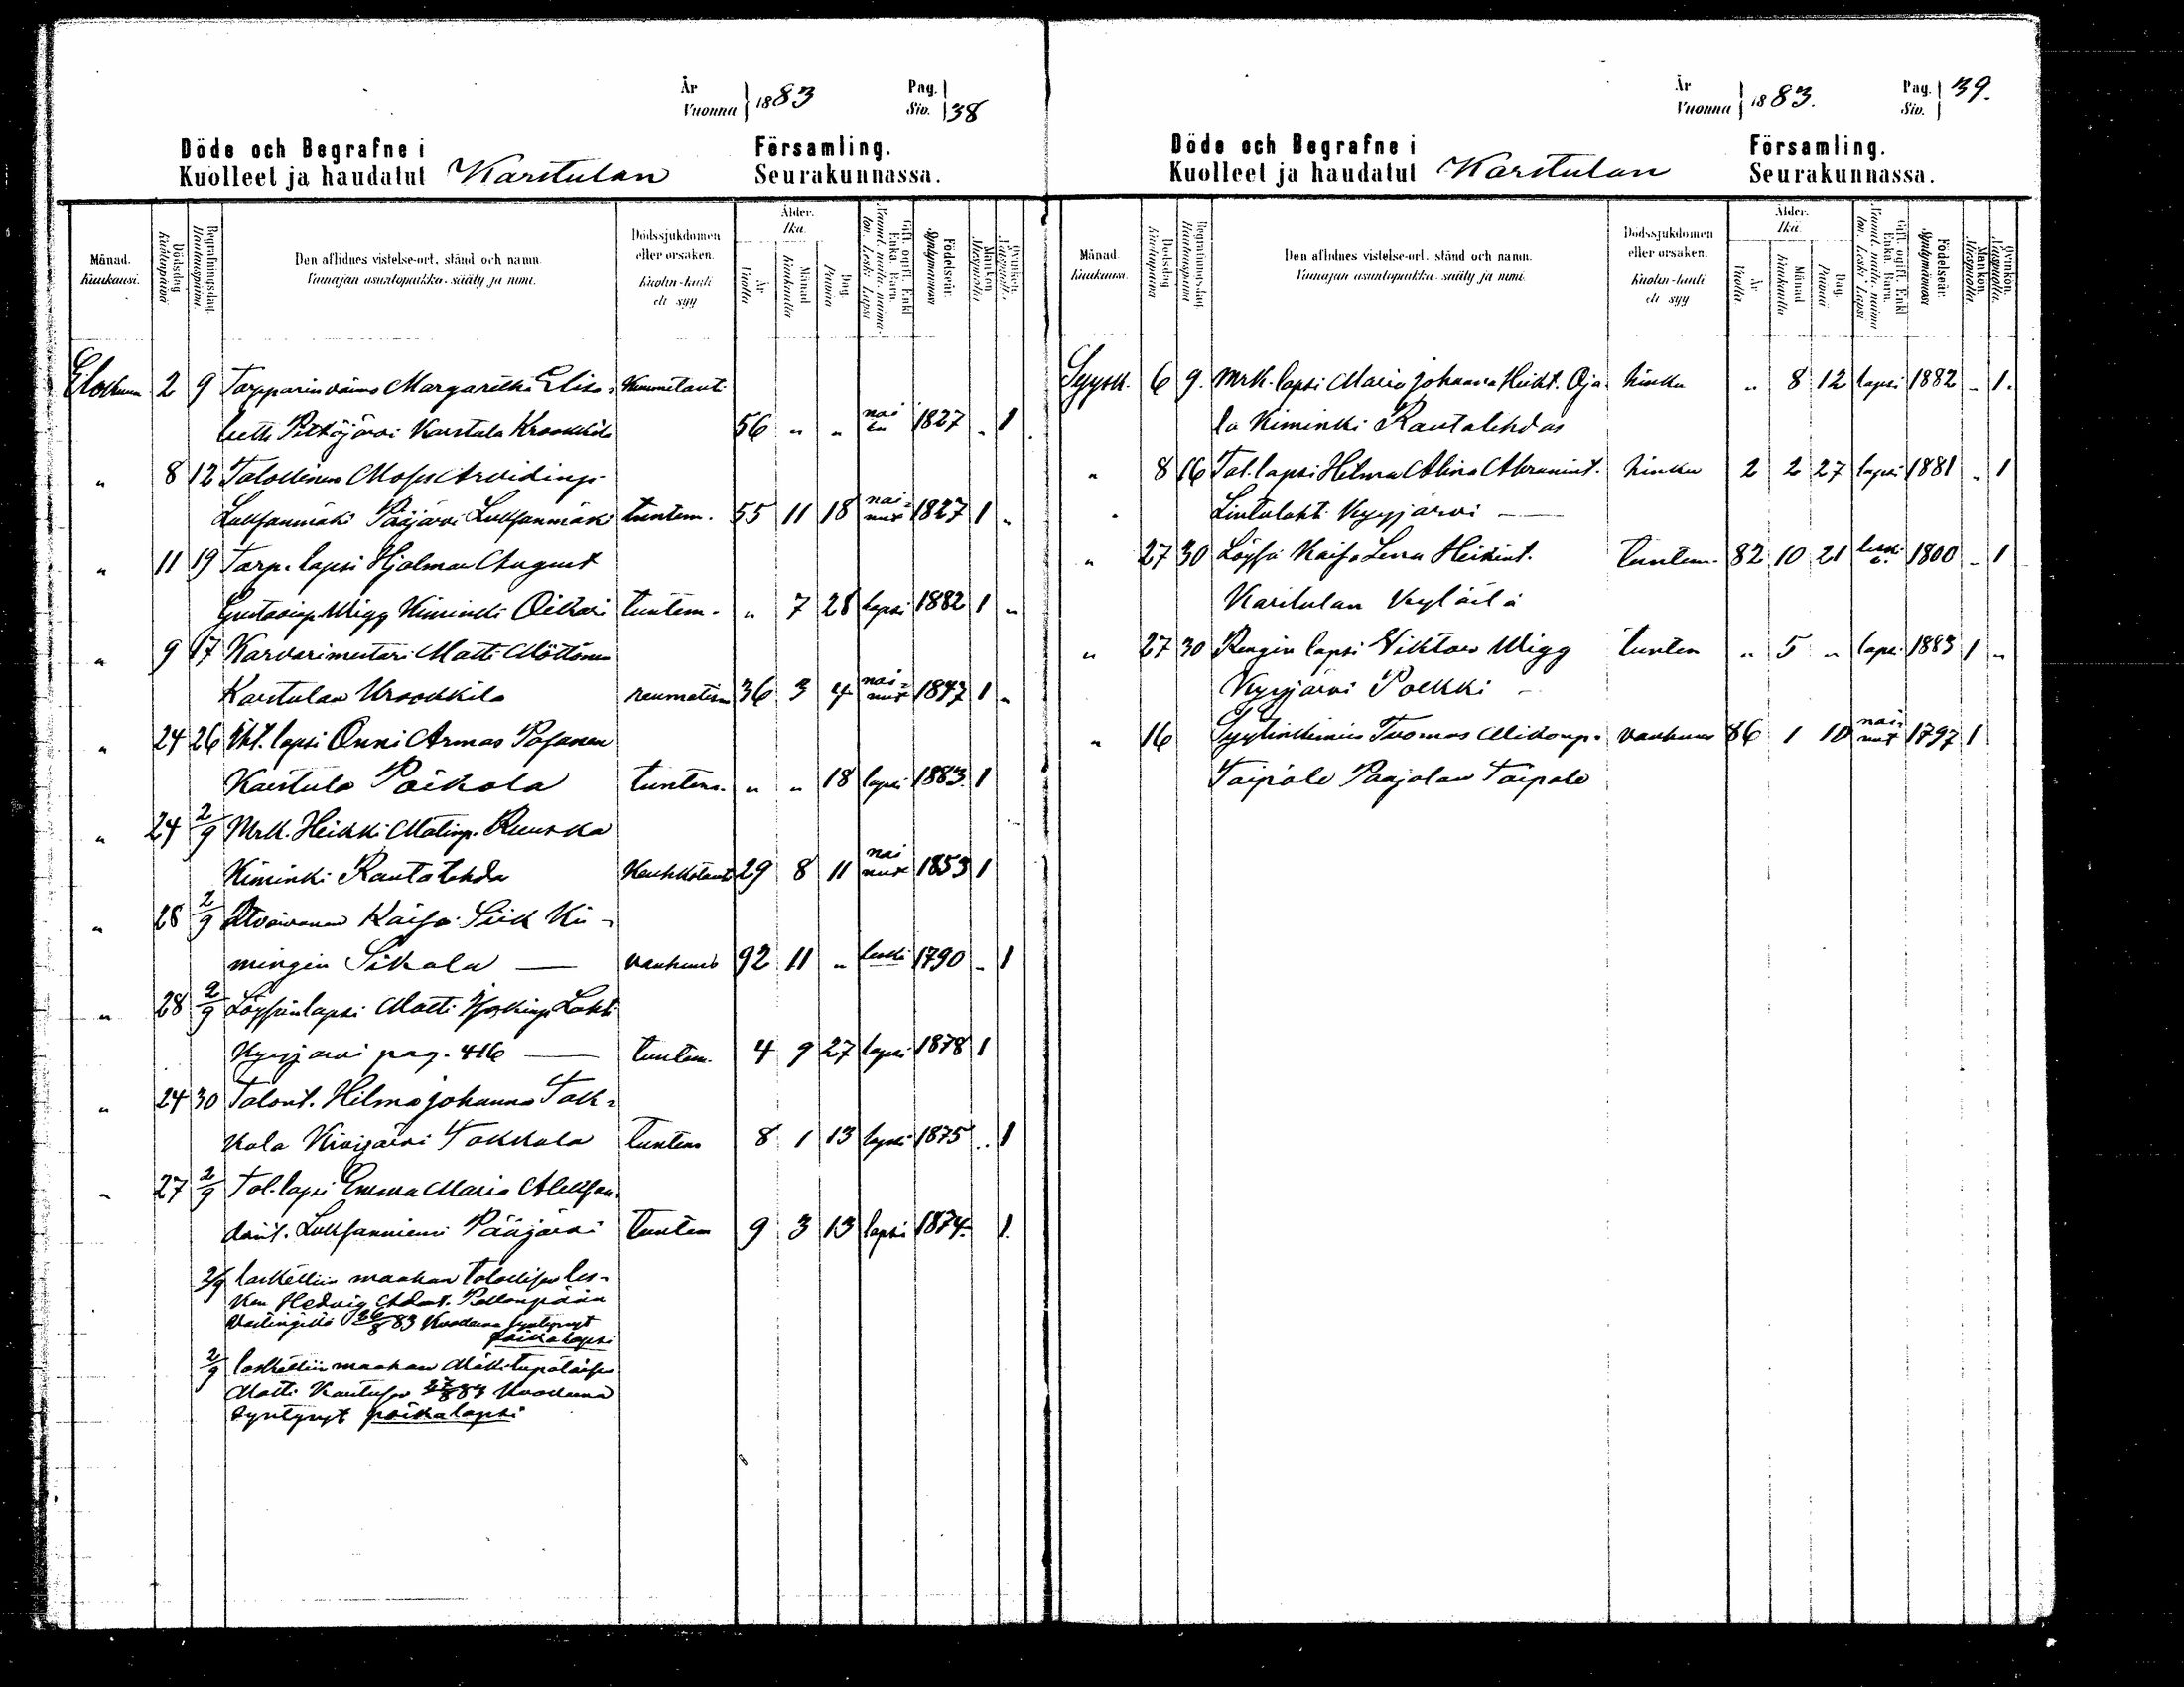 År Vuonna 1883 Pag. Siv. 38
Döde och Begrafne i Församling.
Kuolleet ja haudatut Karstulan Seurakunnassa.
Månad. Kuukausi.
Dödsdag Kuolinpäivä
Begrafningsdag. Hautauspäivä.
Den aflidnes vistelse-ort, stånd och namn.
Vainajan asuntopaikka, sääty ja nimi.
Dödssjukdomen eller orsaken.
Kuolin-tauti eli syy
Ålder. Ikä.
År Vuotta
Månad Kuukautta
Dag. Päivää
Gift, ogift, Enkl. Enka, Barn.
Födelseår. Syntymävuosi
Mankön Miespuolia
Qvinkön. Vaimopuolia.
Elokuun 2 9 Torpparin vaimo Margareetha Elisa-
beth Pitkäjärvi Karstula Krookkila 56 " " nai tu 1827 " 1
" 8 12 Talollinen Moses Arvidinp.
Pääjärvi tuntem. 55 11 18 nai- nut 1827 1 "
" 11 19 Torp. lapsi Hjalmar August
Gustavinp. Wigg Kiminki Oikari tuntem. " 7 28 lapsi 1882 1 "
" 9 17 Karvarimestari Matti Möttönen
Karstulan Krookkila reumatism 36 3 4 nai- nut 1847 1 "
" 24 26 lapsi Onni Armas Pojanen
Karstula Poikola tuntem. " " 18 lapsi 1883. 1
" 24 2/9 Mrk. Heikki Matinp. Ruuska
Kiminki Rautalehda Keuhkotaut 29 8 11 nai nut 1853 1
" 28 2/9 Kaisa Siik Ki-
mingin Sikala — vanhuus 92 11 " leski 1790 " 1
" 28 2/9 Löysän lapsi Matti Lahti
Kyyjärvi pag. 416 — tuntem. 4 9 27 lapsi 1878 1
" 24 30 Talont. Hilma Johanna Tak-
kala Kivijärvi Takkala tuntem 8 1 13 lapsi 1875 " 1
" 27 2/9 Tal. lapsi Emma Maria Aleksan-
derint. Pääjärvi tuntem 9 3 13 lapsi 1874. 1.
2/9 laskettiin maahan talollisen les-
ken Hedvig
26/8 83 kuolleena syntynyt
poikalapsi
2/9 laskettiin maahan Mäkitupalaisen
Matti 27/8 83 kuolleena
syntynyt poikalapsi
År Vuonna 1883. Pag. Siv. 39.
Döde och Begrafne i Församling.
Kuolleet ja haudatut Karstulan Seurakunnassa.
Månad. Kuukausi.
Dödsdag Kuolinpäivä
Begrafningsdag Hautauspäivä
Den aflidnes vistelse-ort, stånd och namn.
Vainajan asuntopaikka, sääty ja nimi.
Dödssjukdomen eller orsaken.
Kuolin-tauti eli syy
Ålder. Ikä.
År Vuotta
Månad Kuukautta
Dag. Päivää
Gift, ogift, Enkl. Enka, Barn.
Födelseår. Syntymävuosi
Mankön. Miespuolia
Qvinkön. Vaimopuolia.
Syysk. 6 9. Mrk. lapsi Maria Johanna Heikt. Oja- hinku " 8 12 lapsi 1882 " 1.
la Kiminki Rautalehdas
" 8 16 Tal. lapsi Helma Alina Abramint. hinku 2 2 27 lapsi 1881 " 1
Lintulahti Kyyjärvi —
" 27 30 Löysä Kaisa Leena Heikint. tuntem. 82 10 21 leski 1800 " 1
Karstulan Kyläilä
" 27 30 Rengin lapsi Viktor Wigg tuntem " 5 " lapsi 1883 1 "
Kyyjärvi Polkki —
" 16 Syytinkimies Tuomas Mikonp. vanhuus 86 1 10 nai- nut 1797 1
Taipale Paajalan Taipale